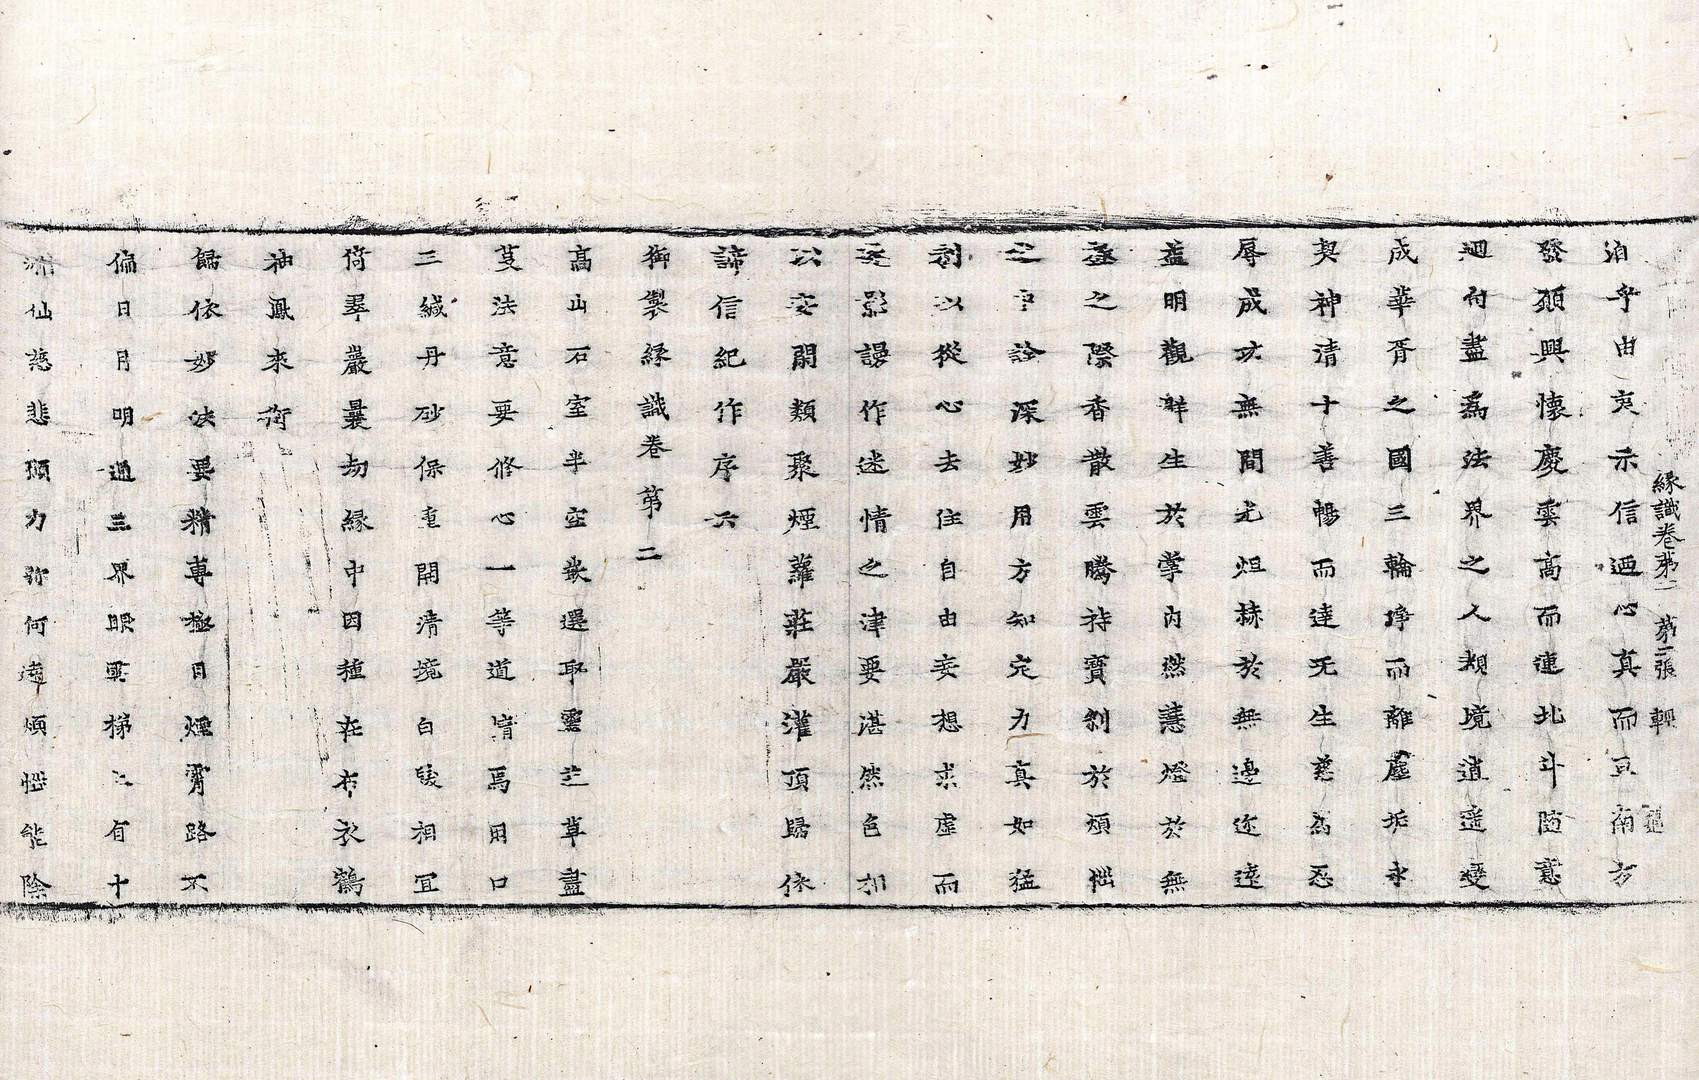 緣識卷第二　第二張　輕
洎乎由衷示信迺心真而亘南方
發願興懷慶雲高而連北斗隨意
迴付盡為法界之人類境逍遥變
成華胥之國三輪淨而離塵垢永
契神清十善暢而達无生慈為忍
辱成功無間光烜赫於無邊迩遠
益明觀群生於掌內然慧燈於無
盡之際香散雲騰持寶剎於煩惱
之中詮深妙用方知定力真如猛
利以從心去住自由妄想求虛而
逐影謾作迷情之津要湛然色相
以交閞類聚煙蘿莊嚴灌頂歸依
諦信紀作序六
御製緣識卷第二
高山石室半空嵌還取靈芝草盡
芟法意要修心一等道情焉用口
三緘丹砂保重開清境白駿相宜
倚翠巖曩劫緣中因種在布衣鶴
袖鳳來銜
歸依妙法要精專極目煙霄路不
偏日月明通三界眼雲梯上有十
洲仙慈悲願力弥何遠煩惱能除